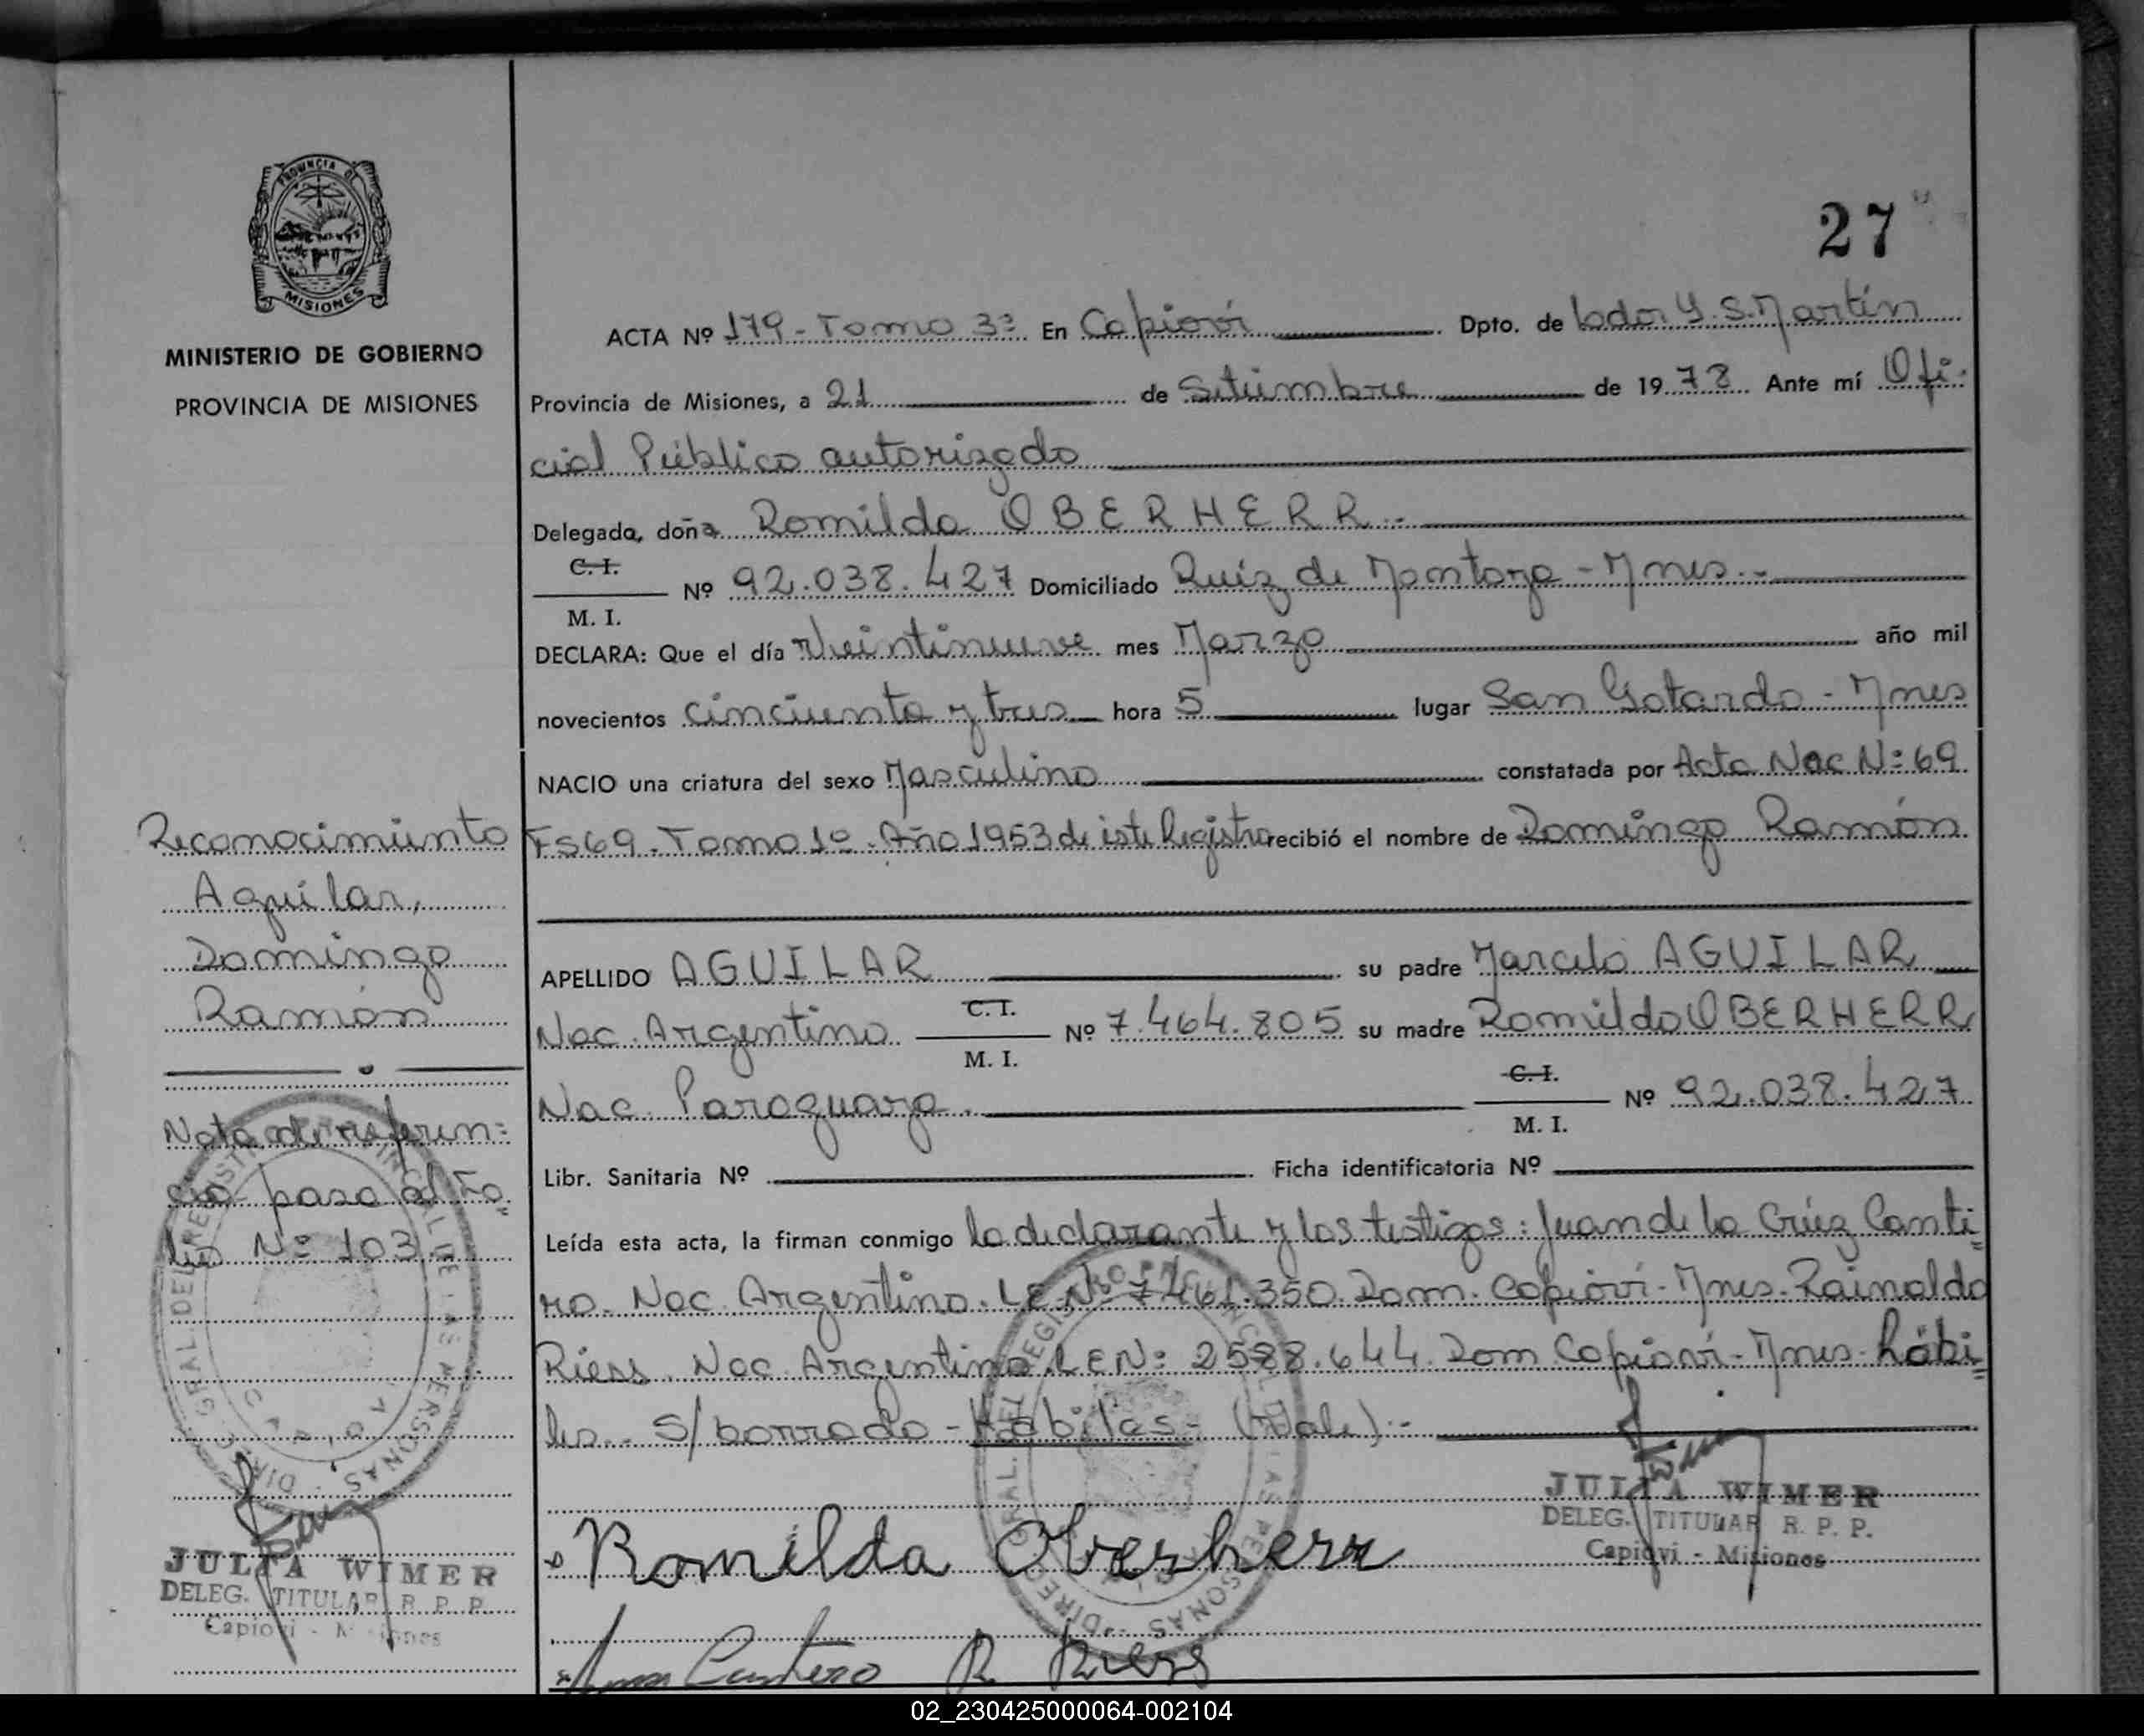 27
PROVINCIA DE
MISIONES
MINISTERIO DE GOBIERNO
PROVINCIA DE MISIONES
ACTA Nº 179 - Tomo 3º En Capioví Dpto. de Ldor. G. S. Martín
Provincia de Misiones, a 21 de Setiembre de 1978 Ante mí Ofi-
cial Público autorizado
Delegada, doña Romilda OBERHERR.-
C. I.
M. I. Nº 92.038.427 Domiciliado Ruíz de Montoya - Mnes.-
DECLARA: Que el día Veintinueve mes Marzo año mil
novecientos cincuenta y tres hora 5 lugar San Gotardo - Mnes
NACIO una criatura del sexo Masculino constatada por Acta Nac Nº 69
Fs 69 - Tomo 1º - Año 1953 de este Registro recibió el nombre de Domingo Ramón
APELLIDO AGUILAR su padre Marcelo AGUILAR
Nac. Argentino C. I. M. I. Nº 7.464.805 su madre Romilda OBERHERR
Nac. Paraguaya. C. I. M. I. Nº 92.038.427
Libr. Sanitaria Nº Ficha identificatoria Nº
Leída esta acta, la firman conmigo la declarante y los testigos: Juan de la Crúz Canti=
ro. Nac. Argentino. L.E. Nº 7.461.350. Dom. Capioví - Mnes. Rainaldo
Riess. Nac. Argentino. L.E. Nº 2588.644. Dom Capioví - Mnes - hábi=
les.. S/ borrado - Hábiles - (Vale).-
Reconocimiento
Aguilar,
Domingo
Ramón
Nota de referen=
cia - pasa al Fo=
lio Nº 103.
JULIA WIMER
DELEG. TITULAR R. P. P.
Capioví - Misiones
Romilda Oberherr
JULIA WIMER
DELEG. TITULAR R. P. P.
Capioví - Misiones
Cantero R Riess
02_230425000064-002104